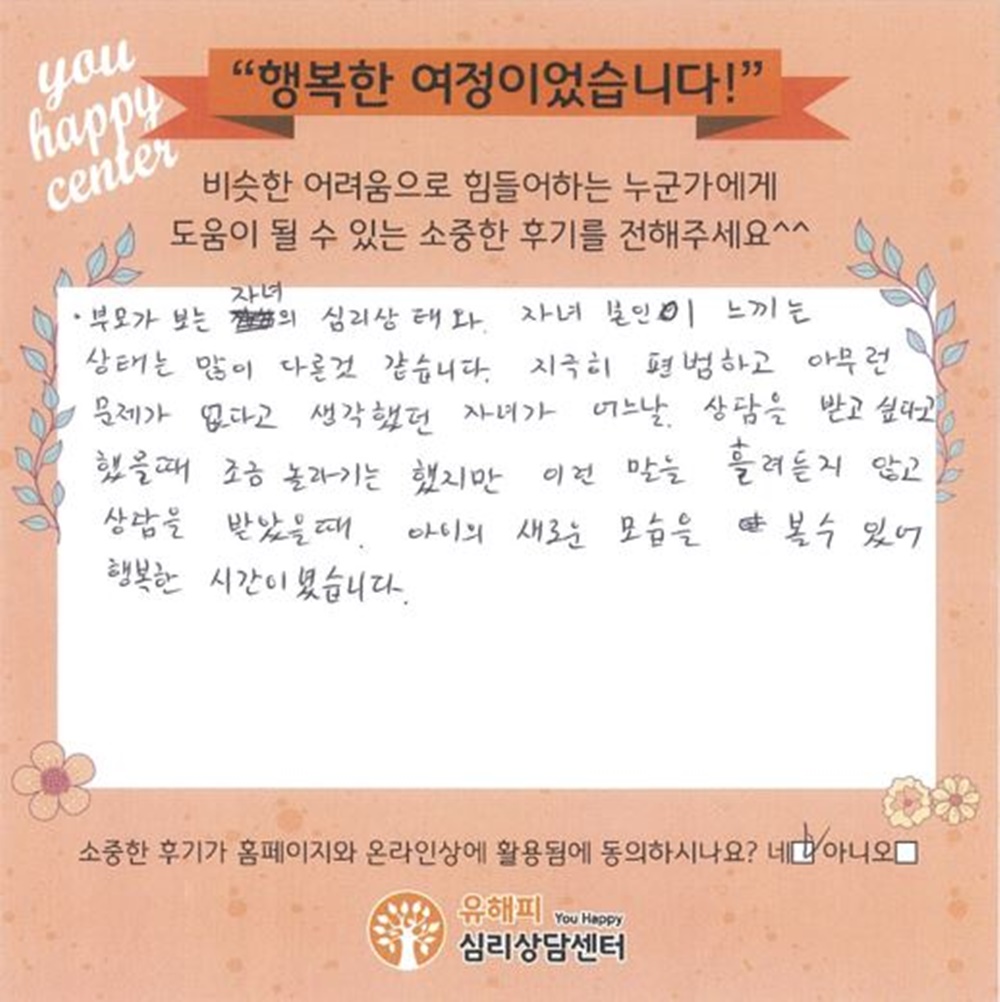 you
happy
center
“행복한 여정이었습니다!”
비슷한 어려움으로 힘들어하는 누군가에게
도움이 될 수 있는 소중한 후기를 전해주세요^^
· 부모가 보는 자녀의 심리상태와. 자녀 본인이 느끼는
상태는 많이 다른것 같습니다. 지극히 편범하고 아무런
문제가 없다고 생각했던 자녀가 어느날. 상담을 받고 싶다고
했을때 조금 놀라기는 했지만 이런 말을 흘려듣지 않고
상담을 받았을때. 아이의 새로운 모습을 볼수 있어
행복한 시간이였습니다.
소중한 후기가 홈페이지와 온라인상에 활용됨에 동의하시나요? 네☑ 아니오☐
유해피 You Happy
심리상담센터